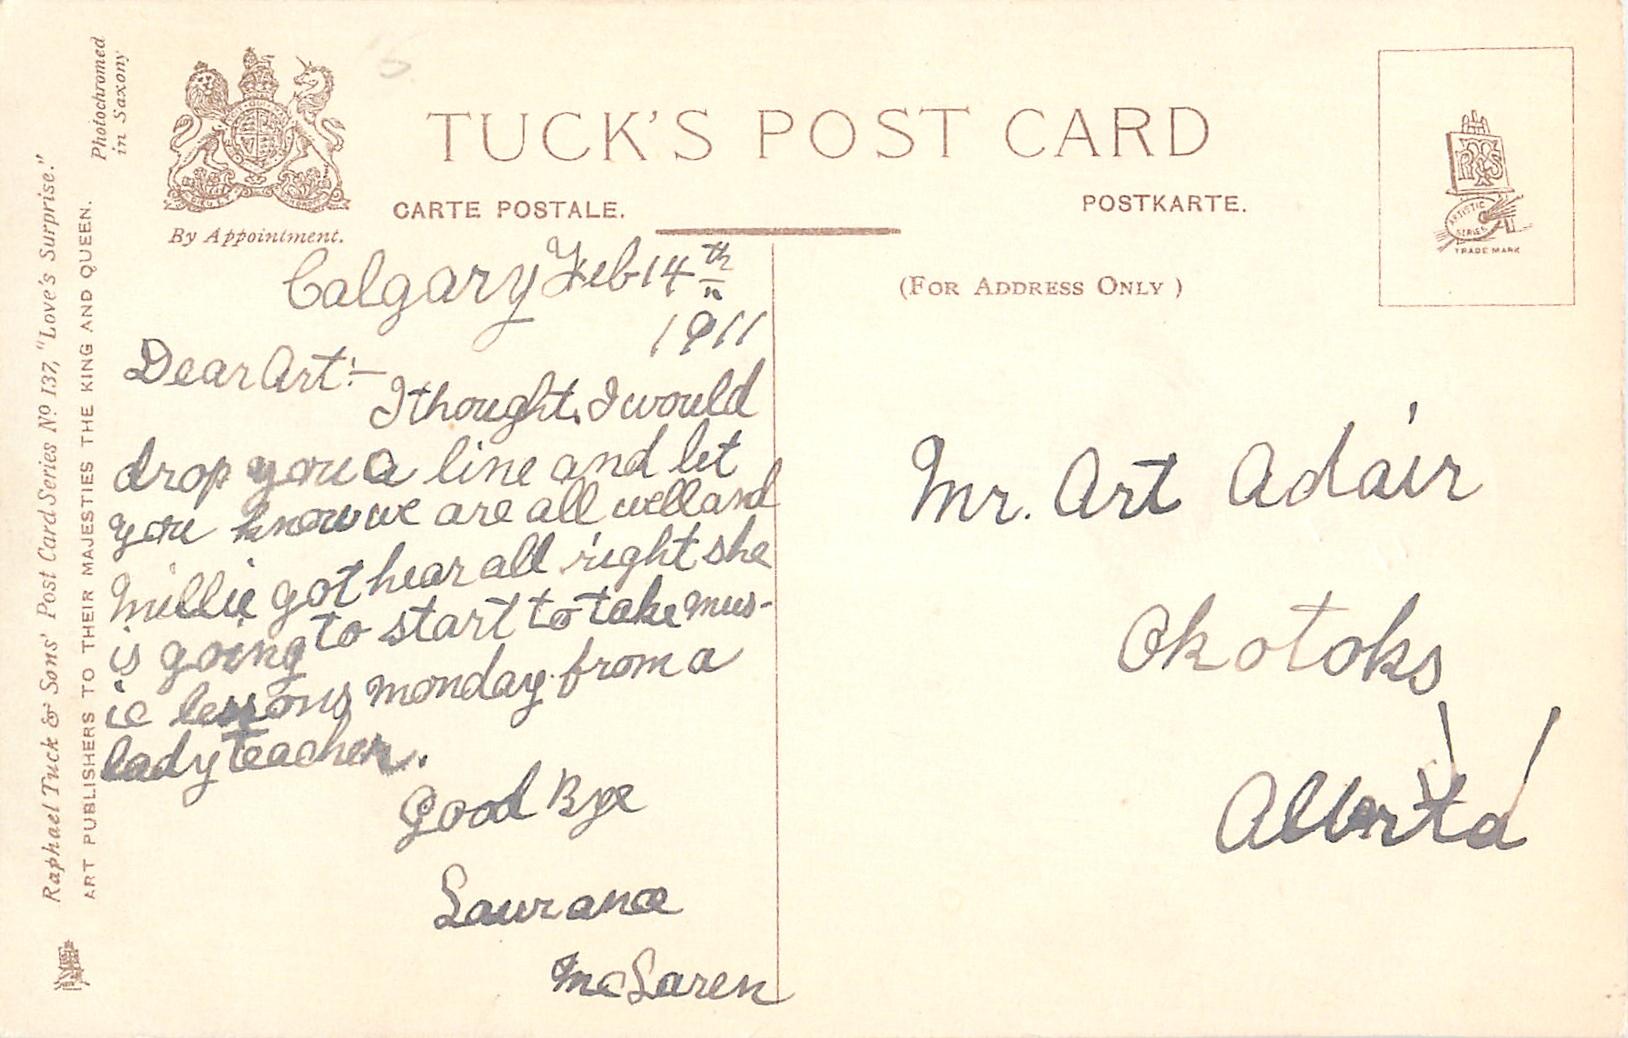 TUCK'S POST CARD
CARTE POSTALE.
POSTKARTE.
By Appointment.
(FOR ADDRESS ONLY)
ARTISTIC
SERIES
TRADE MARK
Photochromed
in Saxony
Raphael Tuck & Sons' Post Card Series Nº 137, "Love's Surprise."
ART PUBLISHERS TO THEIR MAJESTIES THE KING AND QUEEN.
Calgary Feb 14th
1911
Dear Art:—
I thought I would
drop you a line and let
you know we are all well and
Millie got hear all right she
is going to start to take mus-
ic lessons monday from a
lady teacher.
Good Bye
McLaren
Mr. Art Adair
Okotoks
Alberta